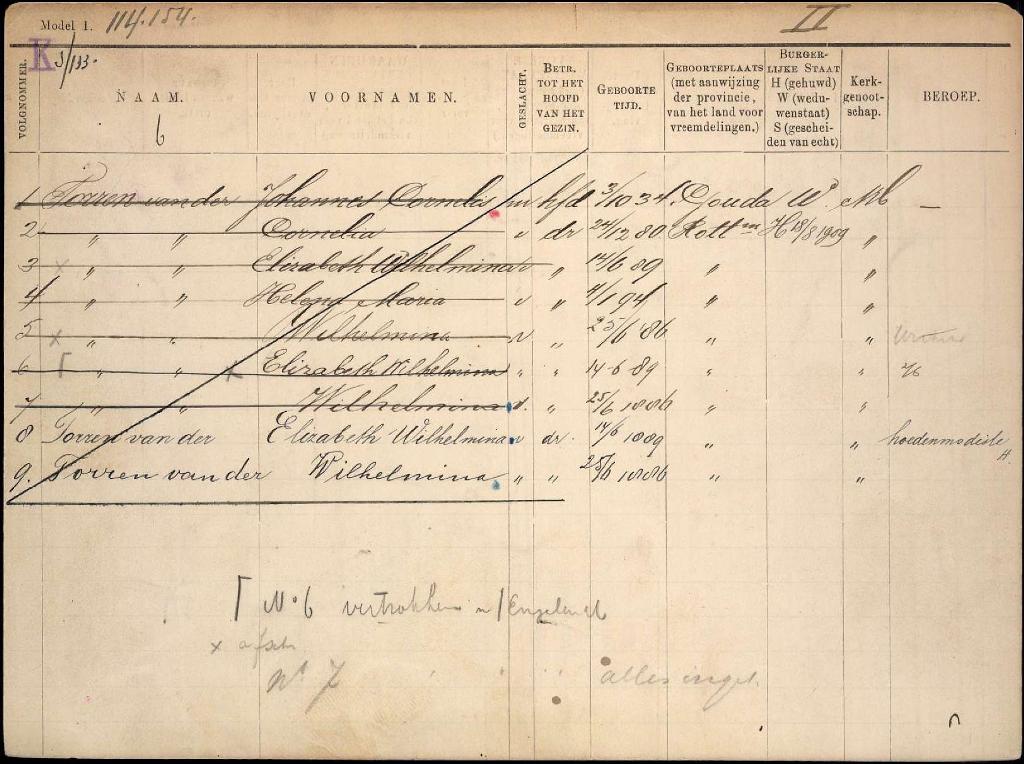 Model 1. 114.154. II
K 3/133.
VOLGNOMMER. NAAM. VOORNAMEN. GESLACHT. BETR. TOT HET HOOFD VAN HET GEZIN. GEBOORTE TIJD. GEBOORTEPLAATS (met aanwijzing der provincie, van het land voor vreemdelingen.) BURGERLIJKE STAAT H (gehuwd) W (weduwenstaat) S (gescheiden van echt) Kerkgenootschap. BEROEP.
6
1 Torren van der Johannes Cornelis m hfd 3/10 34 Gouda W. NH —
2 " " Cornelia v dr 24/12 80 Rottm H 18/8 1909 "
3 x " " Elizabeth Wilhelmina v " 14/6 89 " "
4 " " Helena Maria v " 4/1 94 " "
5 x " " Wilhelmina v " 25/6 86 " "
6 Γ " " x Elizabeth Wilhelmina " " 14-6-89 " "
7 " " Wilhelmina v. " 25/6 1886 " "
8 Torren van der Elizabeth Wilhelmina v dr. 14/6 1889 " " hoedenmodiste
H.
9. Torren van der Wilhelmina " " 25/6 1886 " "
Γ No 6 vertrokken n/ Engeland
x afsch
No 7 " " " alles ingek.